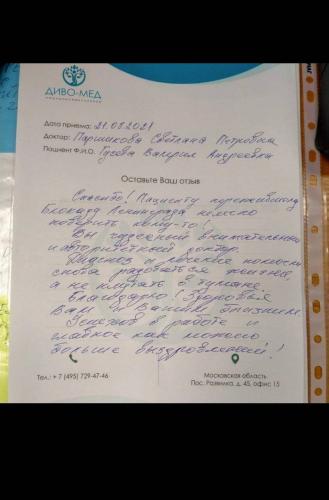 ДИВО-МЕД
Дата приема: 21.08.2021
Доктор: Паршикова Светлана Петровна
Пациент Ф.И.О. Гусева Валерия Андреевна
Оставьте Ваш отзыв
Спасибо! Пациенту пережившему
Блокаду Ленинграда
поверить кому-то!
Вы чудесный внимательный
и авторитетный доктор.
Диагноз и лечение помогли
снова радоваться жизни,
а не в тумане.
Благодарю! Здоровья
Вам и Вашим близким.
Успехов в работе и
главное как можно
больше выздоровлений!
Тел.: + 7 (495) 729-47-46
Московская область
Пос. Развилка, д. 45, офис 15